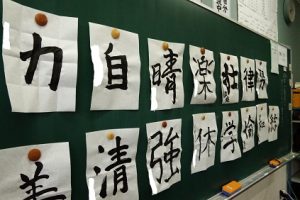 力 自 晴 楽 社 律
善 清 強 休 学 倫